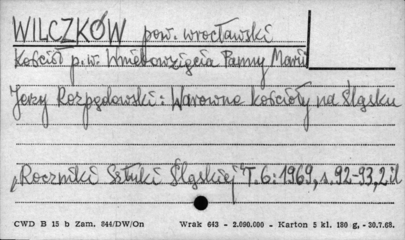 WILCZKÓW pow. wrocławski
Kościół p.w. Wniebowzięcia Panny Marii
Jerzy Rozpędowski: Warowne kościoły na Śląsku
"Roczniki Sztuki Śląskiej" T.6:1969, s.92-93, 2 il
CWD B 15 b Zam. 844/DW/On Wrak 643 - 2.090.000 - Karton 5 kl. 180 g, - 30.7.68.